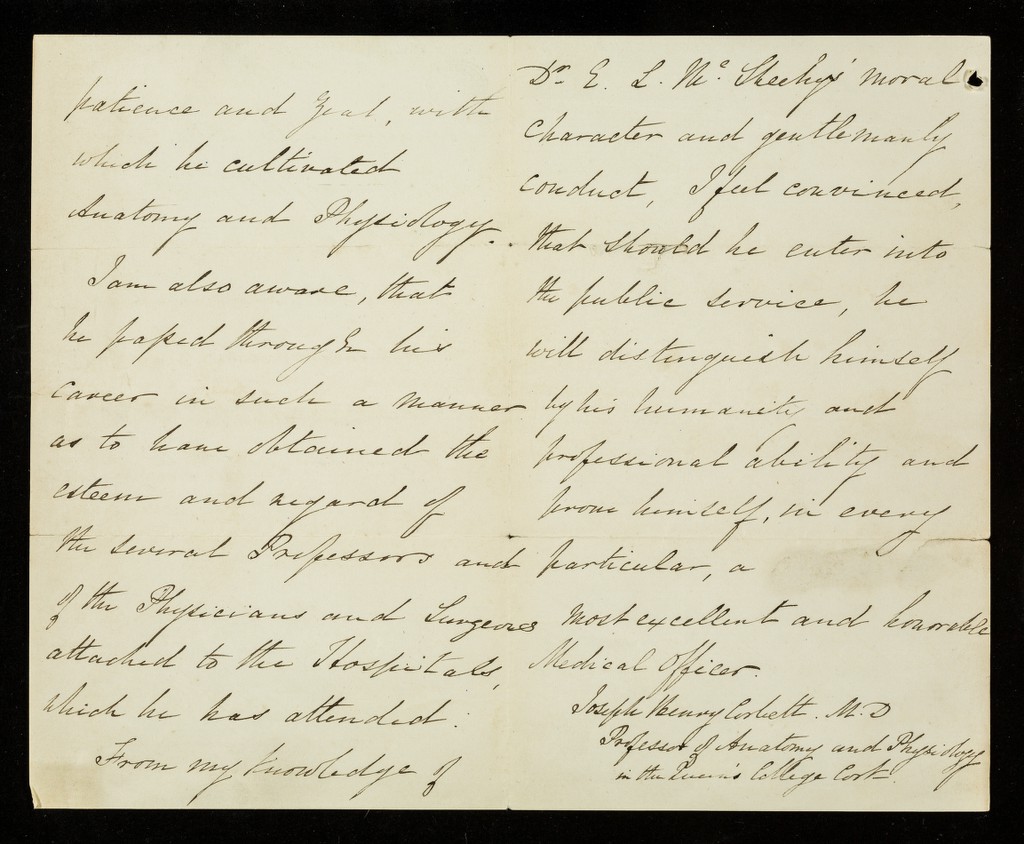 patience and Zeal, with
which he cultivated
Anatomy and Physiology.
I am also aware, that
he passed through his
career in such a manner
as to have obtained the
esteem and regard of
the several Professors and
of the Physicians and Surgeons
attached to the Hospitals,
which he has attended.
From my knowledge of
Dr. E. L. Mc Sheehy's moral
character and gentlemanly
conduct, I feel convinced,
that should he enter into
the public service, he
will distinguish himself
by his humanity and
professional ability and
prove himself, in every
particular, a
most excellent and honorable
Medical Officer.
Joseph Henry Corbett. M.D
Professor of Anatomy and Physiology
in the Queen's College Cork.